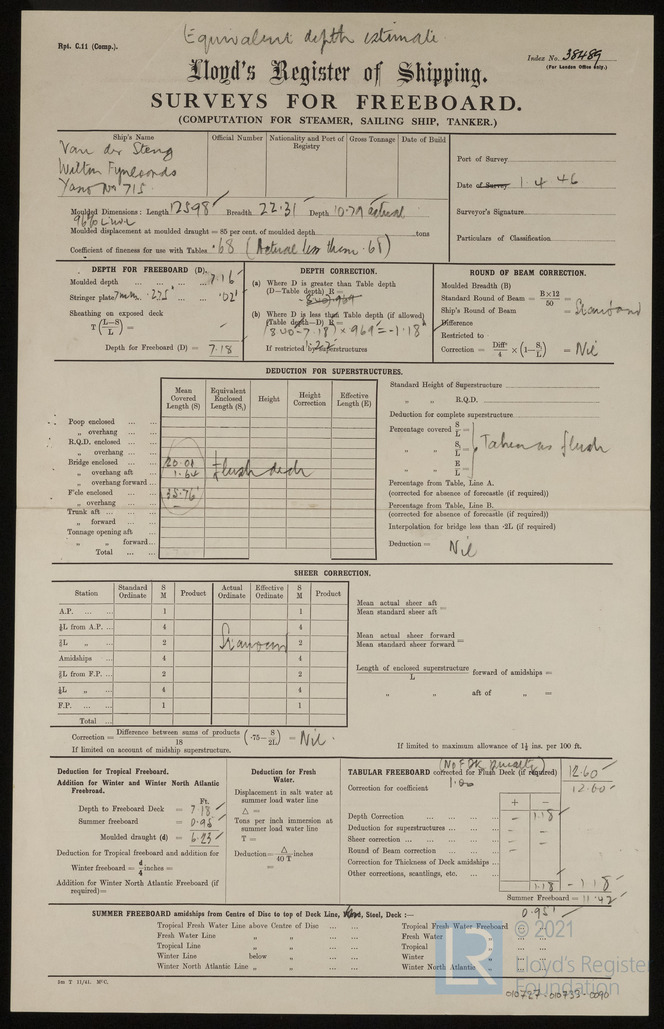 Equivalent depth estimate
Rpt. C.11 (Comp.).
Index No. 38489
(For London Office only.)
Lloyd's Register of Shipping.
SURVEYS FOR FREEBOARD.
(COMPUTATION FOR STEAMER, SAILING SHIP, TANKER.)
Ship's Name
Official Number
Nationality and Port of Registry
Gross Tonnage
Date of Build
Van der Steng
Wilton Fyneoords
Yard No 715.
Port of Survey
Date of Survey 1.4.46
Surveyor's Signature
Particulars of Classification
Moulded Dimensions: Length 125.98 Breadth 22.31 Depth 10.79 actual
96% LWL
Moulded displacement at moulded draught = 85 per cent. of moulded depth tons
Coefficient of fineness for use with Tables .68 (Actual less than .68)
DEPTH FOR FREEBOARD (D).
Moulded depth 7.16
Stringer plate 7mm. .275" .02'
Sheathing on exposed deck
T(L—S/L) =
Depth for Freeboard (D) = 7.18
DEPTH CORRECTION.
(a) Where D is greater than Table depth
(D—Table depth) R =
(b) Where D is less than Table depth (if allowed)
(Table depth—D) R =
(8.40-7.18) × .969 = -1.18"
If restricted by superstructures
ROUND OF BEAM CORRECTION.
Moulded Breadth (B)
Standard Round of Beam = B×12/50 =
Ship's Round of Beam = Standard
Difference
Restricted to
Correction = Diffce/4 × (1—S₁/L) = Nil
DEDUCTION FOR SUPERSTRUCTURES.
Mean Covered Length (S)
Equivalent Enclosed Length (S₁)
Height
Height Correction
Effective Length (E)
Poop enclosed
„ overhang
R.Q.D. enclosed
„ overhang
Bridge enclosed 20.01 flush deck
„ overhang aft 1.64
„ overhang forward
F'cle enclosed 35.76'
„ overhang
Trunk aft
„ forward
Tonnage opening aft
„ „ forward
Total
Standard Height of Superstructure
„ „ R.Q.D.
Deduction for complete superstructure
Percentage covered S/L =
„ „ S₁/L = Taken as flush
„ „ E/L =
Percentage from Table, Line A.
(corrected for absence of forecastle (if required))
Percentage from Table, Line B.
(corrected for absence of forecastle (if required))
Interpolation for bridge less than ·2L (if required)
Deduction = Nil
SHEER CORRECTION.
Station
Standard Ordinate
S M
Product
Actual Ordinate
Effective Ordinate
S M
Product
A.P. 1 1
⅙L from A.P. 4 4
⅓L „ 2 Standard 2
Amidships 4 4
⅓L from F.P. 2 2
⅙L „ 4 4
F.P. 1 1
Total
Mean actual sheer aft / Mean standard sheer aft =
Mean actual sheer forward / Mean standard sheer forward =
Length of enclosed superstructure / L forward of amidships =
„ „ aft of „ =
Correction = Difference between sums of products / 18 (·75—S/2L) = Nil.
If limited on account of midship superstructure.
If limited to maximum allowance of 1½ ins. per 100 ft.
Deduction for Tropical Freeboard.
Addition for Winter and Winter North Atlantic Freeboard.
Ft.
Depth to Freeboard Deck = 7.18
Summer freeboard = 0.95
Moulded draught (d) = 6.23
Deduction for Tropical freeboard and addition for
Winter freeboard = d/4 inches =
Addition for Winter North Atlantic Freeboard (if required) =
Deduction for Fresh Water.
Displacement in salt water at summer load water line
Δ =
Tons per inch immersion at summer load water line
T =
Deduction = Δ/40 T inches
=
(No F.Dk penalty)
TABULAR FREEBOARD corrected for Flush Deck (if required) 12.60
Correction for coefficient 1.00 12.60
+ —
Depth Correction — 1.18
Deduction for superstructures — —
Sheer correction — —
Round of Beam correction — —
Correction for Thickness of Deck amidships
Other corrections, scantlings, etc.
1.18 - 1.18
Summer Freeboard = 11.42
0.95'
SUMMER FREEBOARD amidships from Centre of Disc to top of Deck Line, Wood, Steel, Deck :—
Tropical Fresh Water Line above Centre of Disc
Fresh Water Line „ „
Tropical Line „ „
Winter Line below „
Winter North Atlantic Line „ „
Tropical Fresh Water Freeboard
Fresh Water „
Tropical „
Winter „
Winter North Atlantic „
2m T 11/41. MᶜC.
LR
© 2021
Lloyd's Register
Foundation
010727-010733-0090